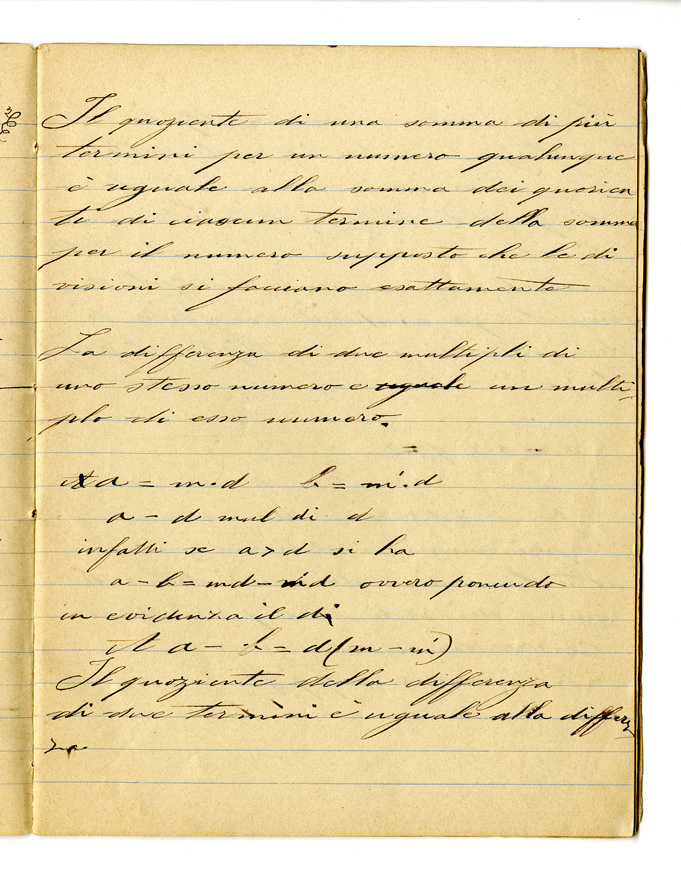 Il quoziente di una somma di più
termini per un numero qualunque
è uguale alla somma dei quozien
ti di ciascun termine della somma
per il numero supposto che le di
visioni si facciano esattamente
La differenza di due multipli di
uno stesso numero e uguale un multi-
plo di esso numero.
a = m · d b = m' · d
a - d mul di d
infatti se a > d si ha
a - b = md - m'd ovvero ponendo
in evidenza il d
a - b = d(m - m')
Il quoziente della differenza
di due termini è uguale alla differen
za